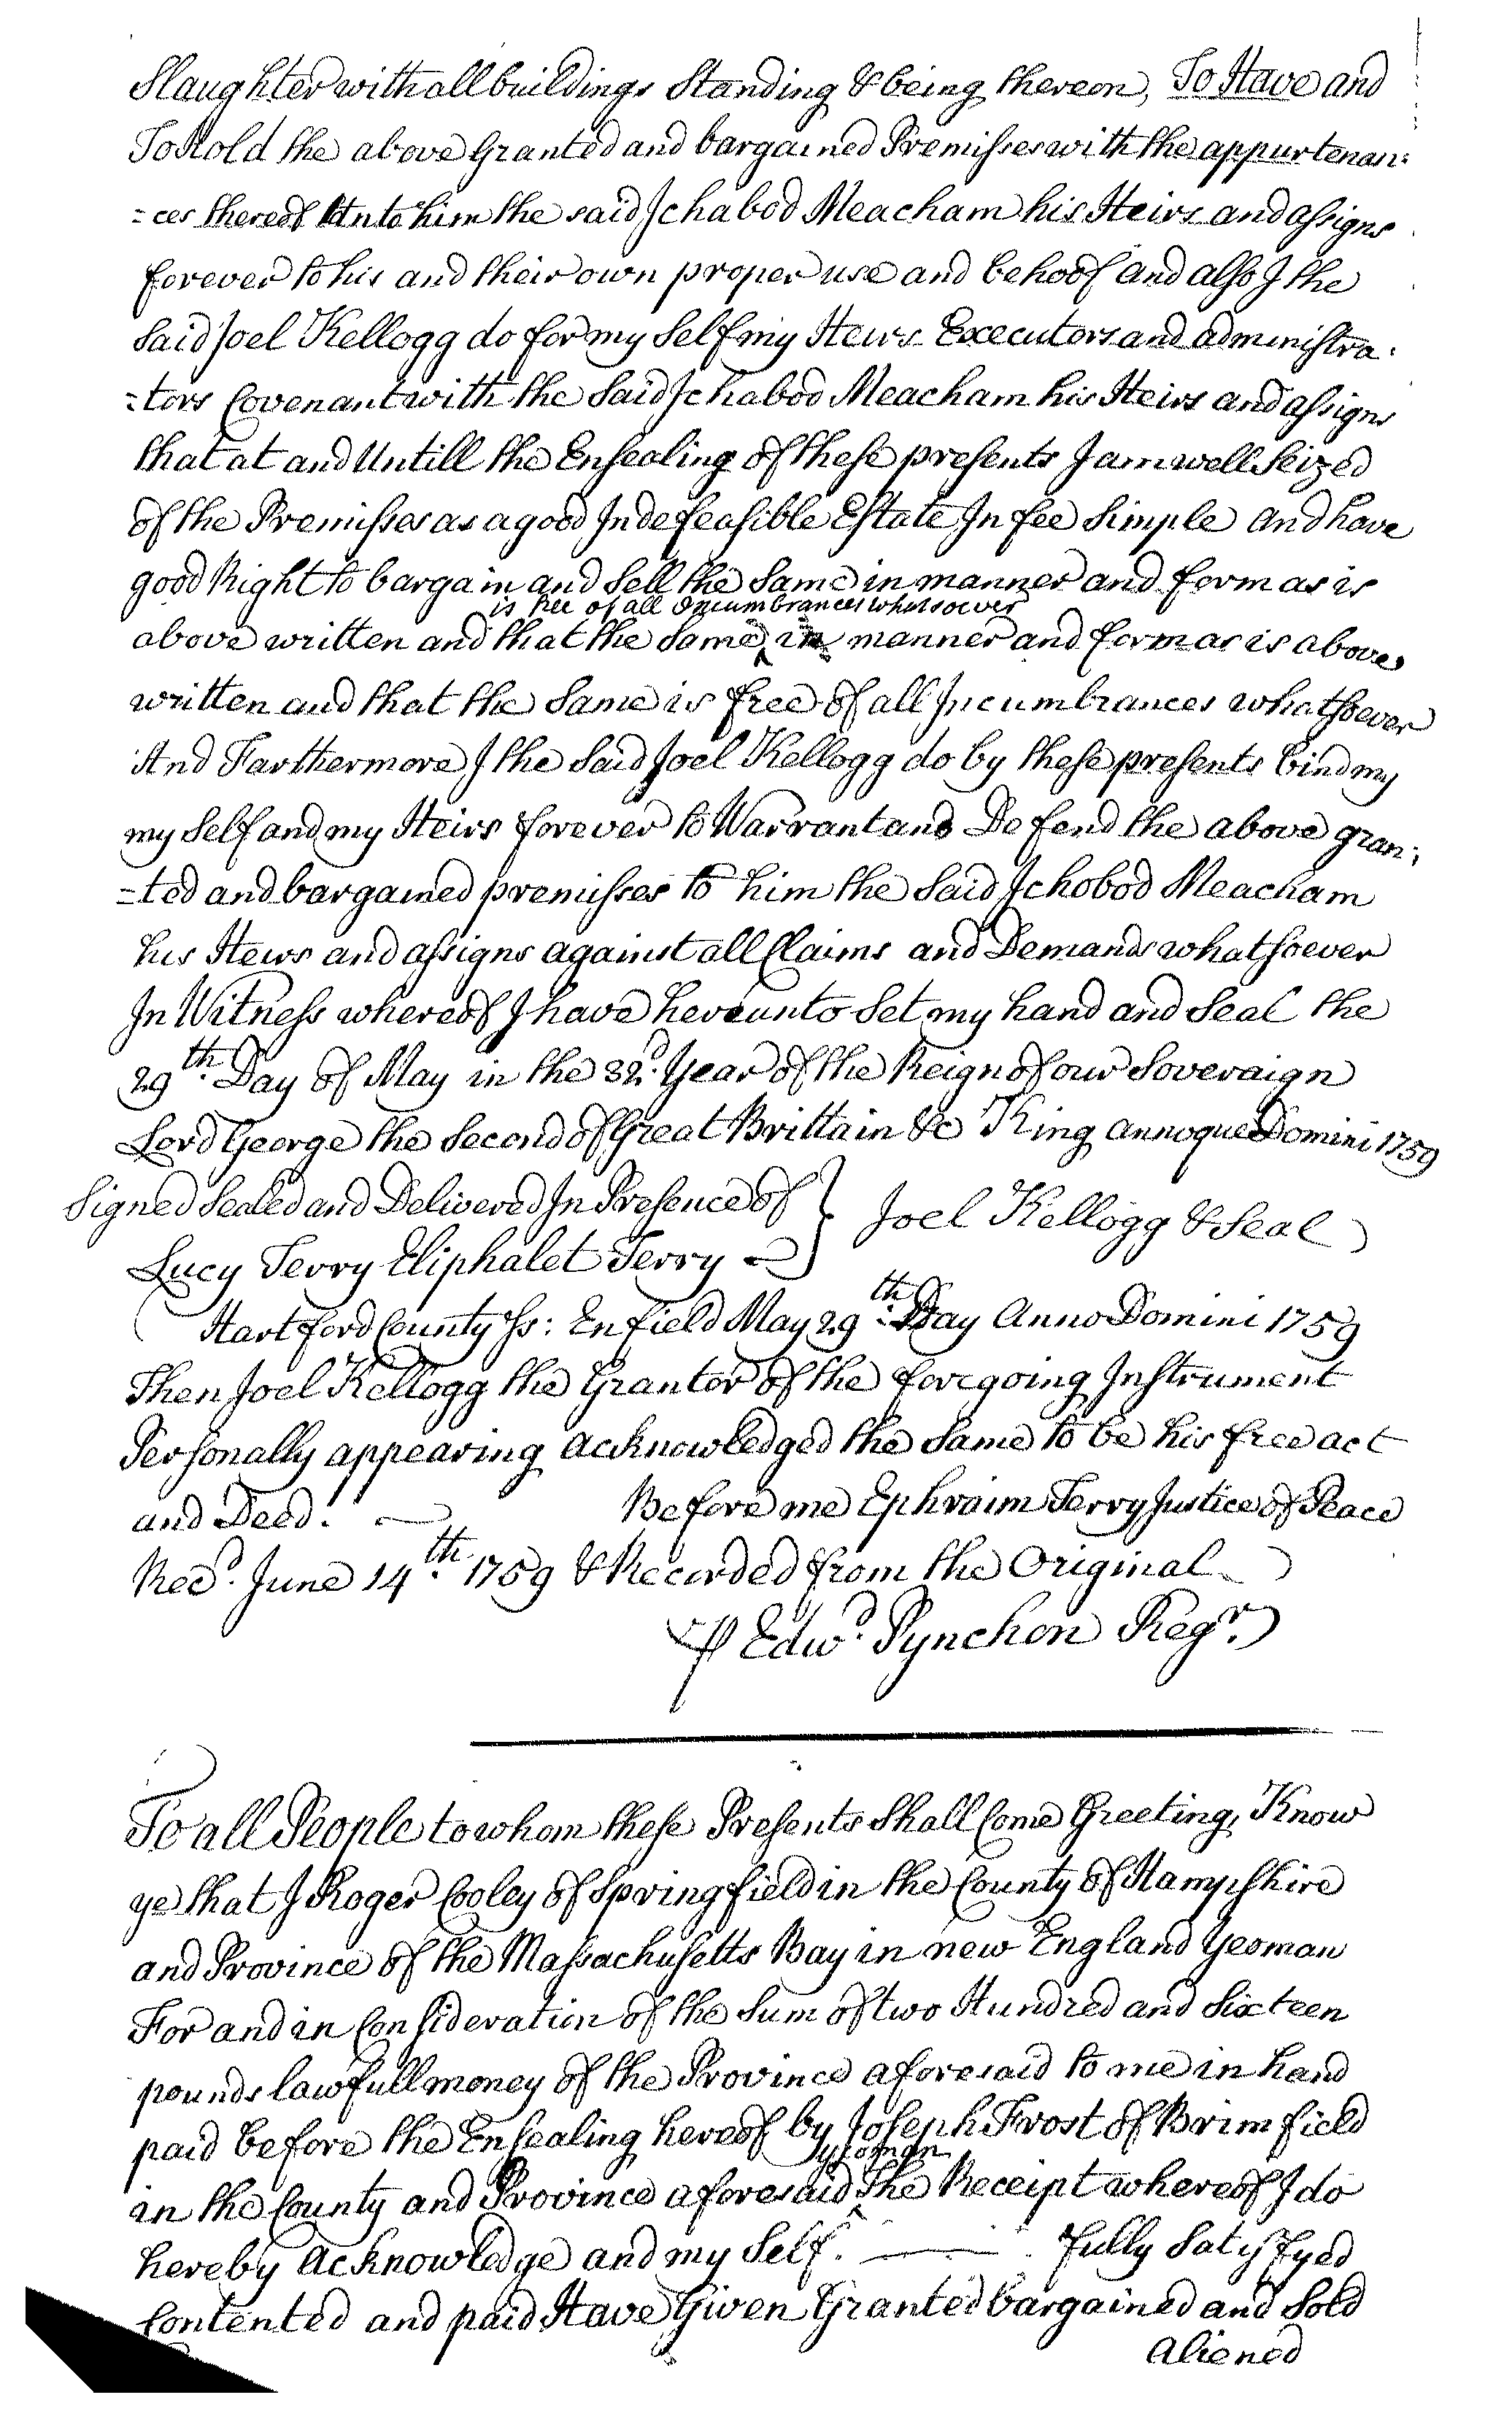 Slaughter with all buildings Standing & being thereon, To Have and
To Hold the above Granted and bargained Premisses with the appurtenan:
=ces thereof Unto him the said Ichabod Meacham his Heirs and assigns
forever to his and their own proper use and behoof and also I the
Said Joel Kellogg do for my Self my Heirs Executors and administra:
=tors Covenant with the Said Ichabod Meacham his Heirs and assigns
that at and Untill the Ensealing of these presents I am well Seized
of the Premisses as a good Indefeasible Estate In fee Simple and have
good Right to bargain and Sell the Same in manner and form as is
is free of all Incumbrances whatsoever
above written and that the Same ‸ in manner and form as is above
written and that the Same is free of all Incumbrances whatsoever
And Farthermore I the Said Joel Kellogg do by these presents bind my
my Self and my Heirs forever to Warrant and Defend the above gran:
=ted and bargained premisses to him the Said Ichobod Meacham
his Heirs and assigns against all Claims and Demands whatsoever
In Witness whereof I have hereunto Set my hand and Seal the
29th. Day of May in the 32d. Year of the Reign of our Soveraign
Lord George the Second of Great Brittain &c King annoque Domini 1759
Signed Sealed and Delivered In Presence of } Joel Kellogg & Seal
Lucy Terry Eliphalet Terry
Hartford County Ss: Enfield May 29th. Day Anno Domini 1759
Then Joel Kellogg the Grantor of the foregoing Instrument
Personally appearing acknowledged the Same to be his free act
and Deed. — Before me Ephraim Terry Justice of Peace
Recd. June 14th. 1759 & Recorded from the Original
⅌ Edwd. Pynchon Regr.
To all People to whom these Presents Shall Come Greeting, Know
ye that I Roger Cooley of Springfield in the County of Hampshire
and Province of the Massachusetts Bay in new England Yeoman
For and in Consideration of the Sum of two Hundred and Sixteen
pounds lawfull money of the Province aforesaid to me in hand
paid before the Ensealing hereof by Joseph Frost of Brimfield
yeoman
in the County and Province aforesaid ‸ the Receipt whereof I do
hereby Acknowledge and my Self. — fully Satisfyed
Contented and paid Have Given Granted bargained and Sold
aliened